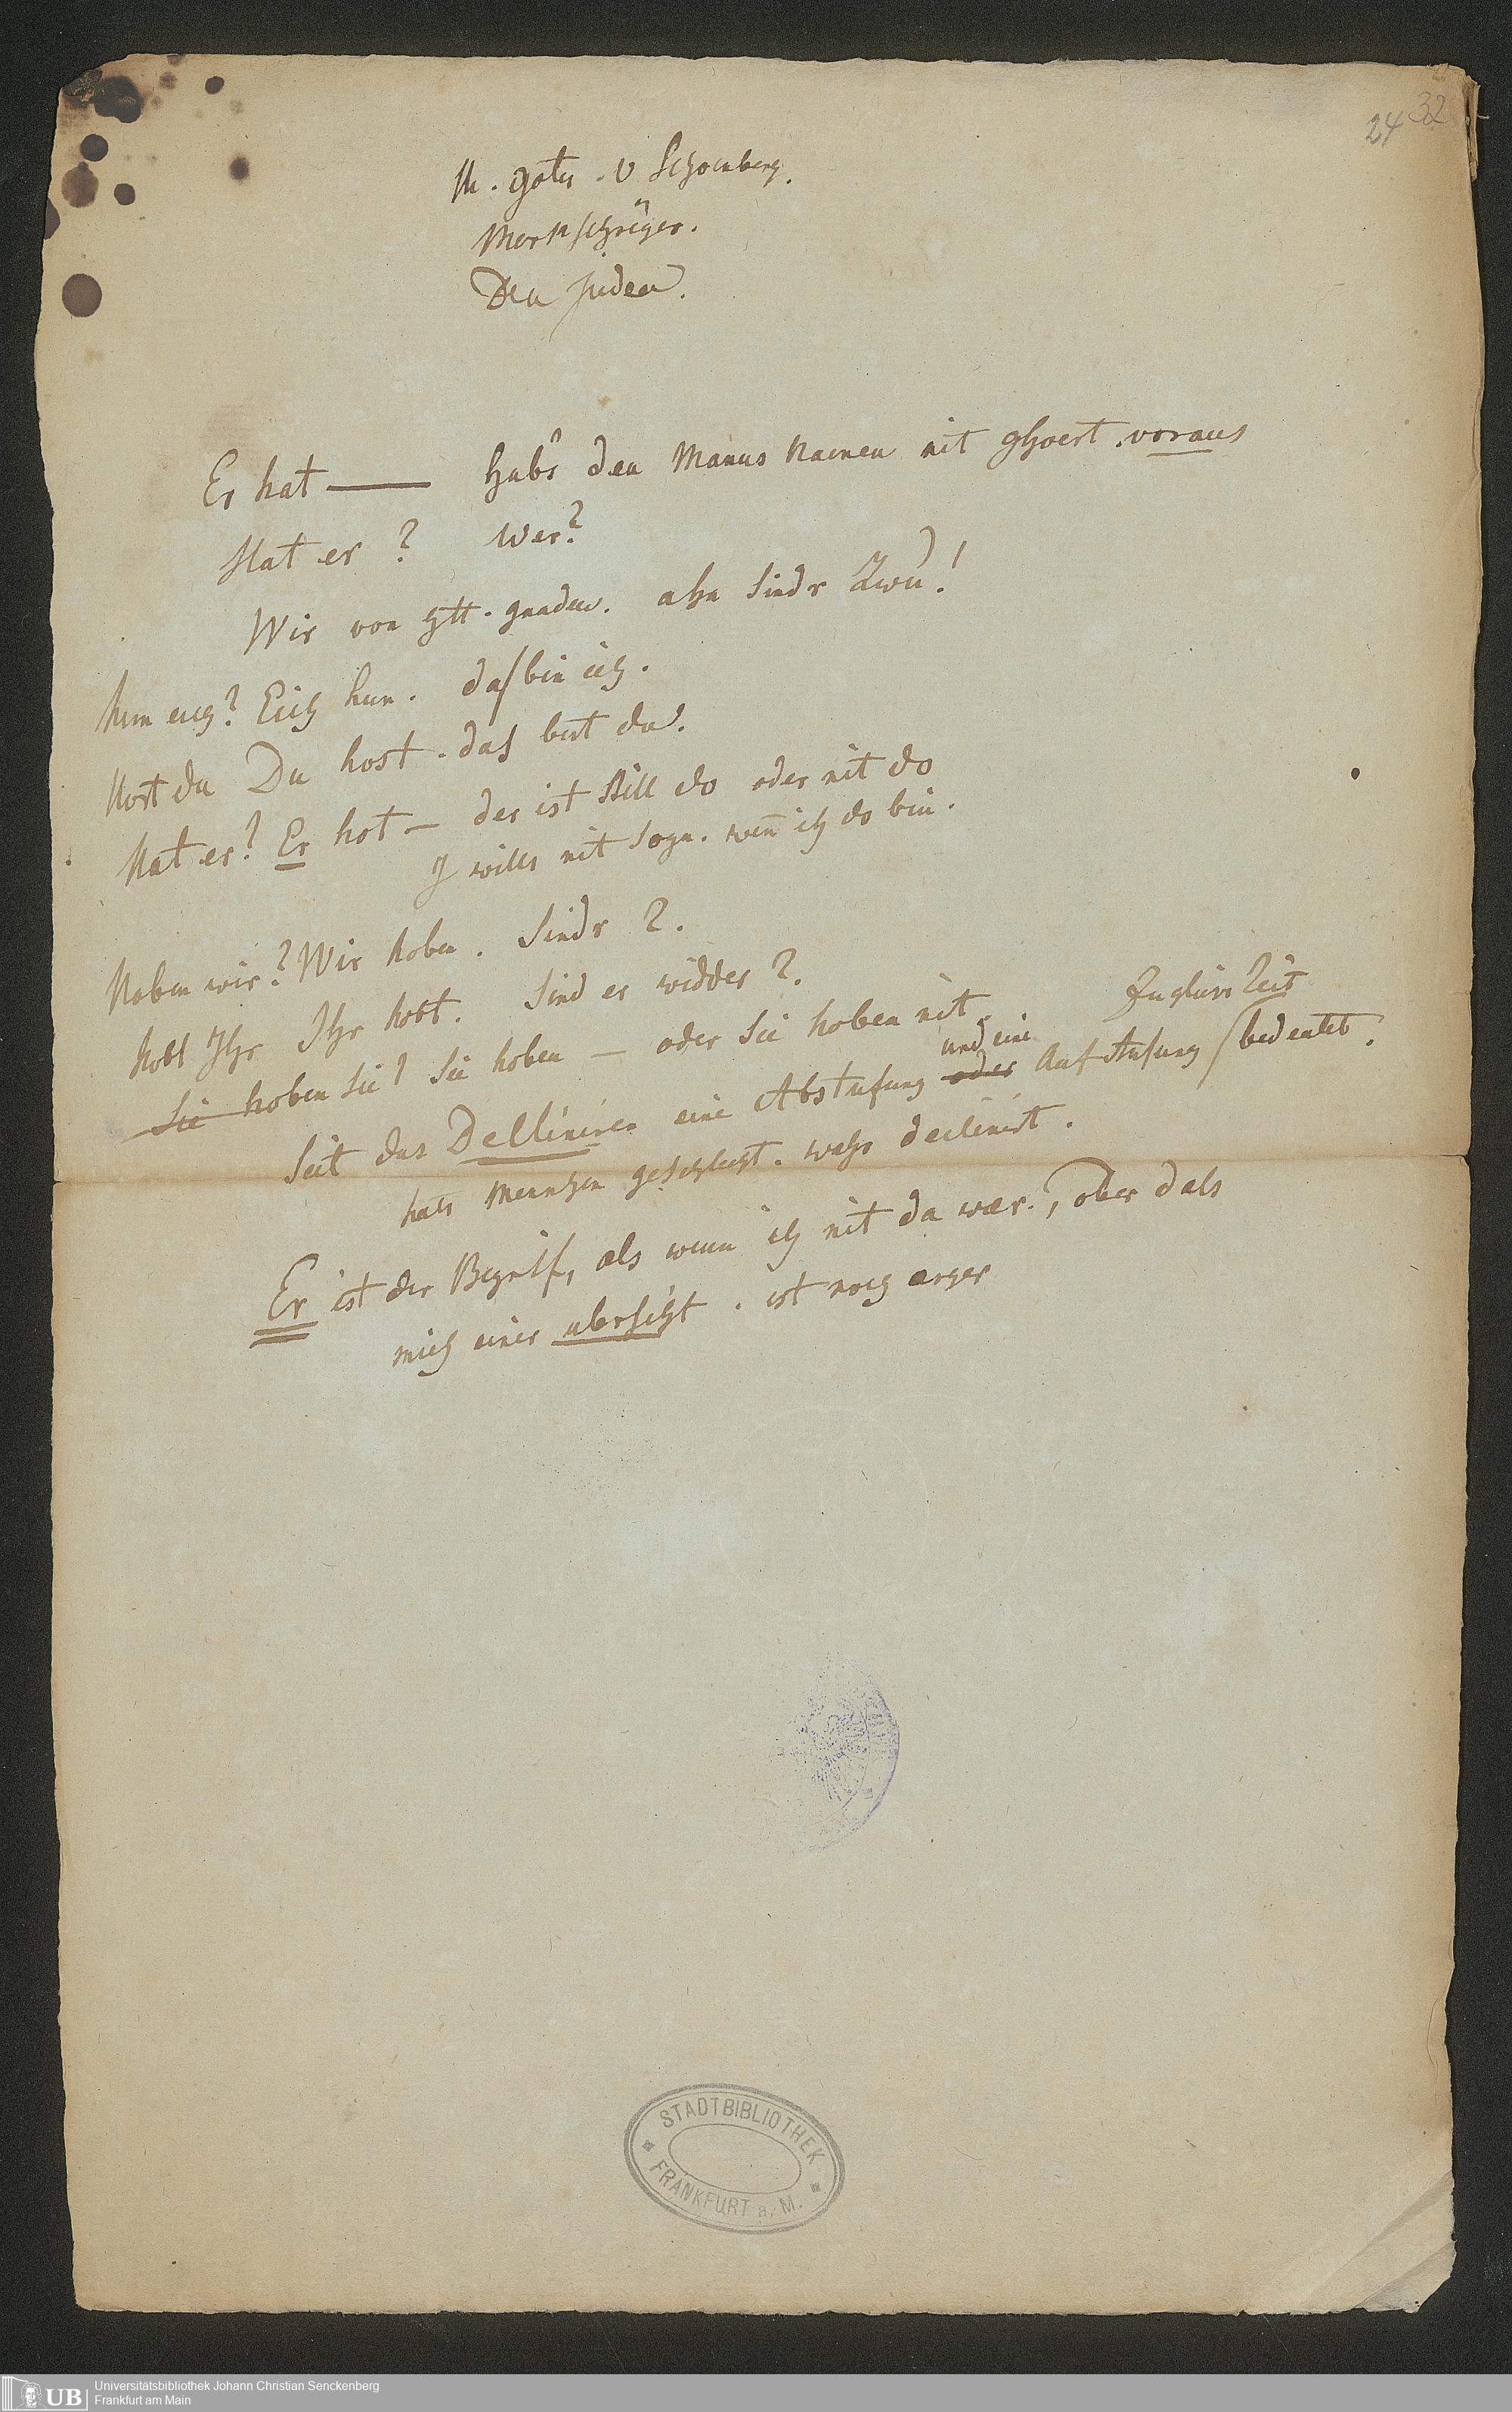 24 32
M. gotes. v Schoenberg.
Markschreyer.
Den Juden.
Er hat — habs den Manns Naemen nit ghoert. voraus
Hat er? Wer?
Wir von gtt. gnaden. ahn sinds Zwu!
hun euch? Eich hun. das bin ich.
Host du Du host. das bist du.
Hat er? Er hot — der ist still do oder nit do
I wills nit sogn. weñ ich do bin.
Hoben wir? Wir hoben. sinds 2.
hobt Ihr Ihr hobt. sind es widder 2.
Sie hoben Sie? Sie hoben — oder Sie hoben nit.
Zugleins Zeit
und eine
Seit das Decliniren eine Abstufung oder Aufstufung bedeutet.
hats Menschen geschlecht. wohs declinirt.
Er ist der Begrif, als wenn ich nit da waer., ober dals
mich einer ubersicht. ist noch arger
STADTBIBLIOTHEK
FRANKFURT a. M.
UB
Universitätsbibliothek Johann Christian Senckenberg
Frankfurt am Main